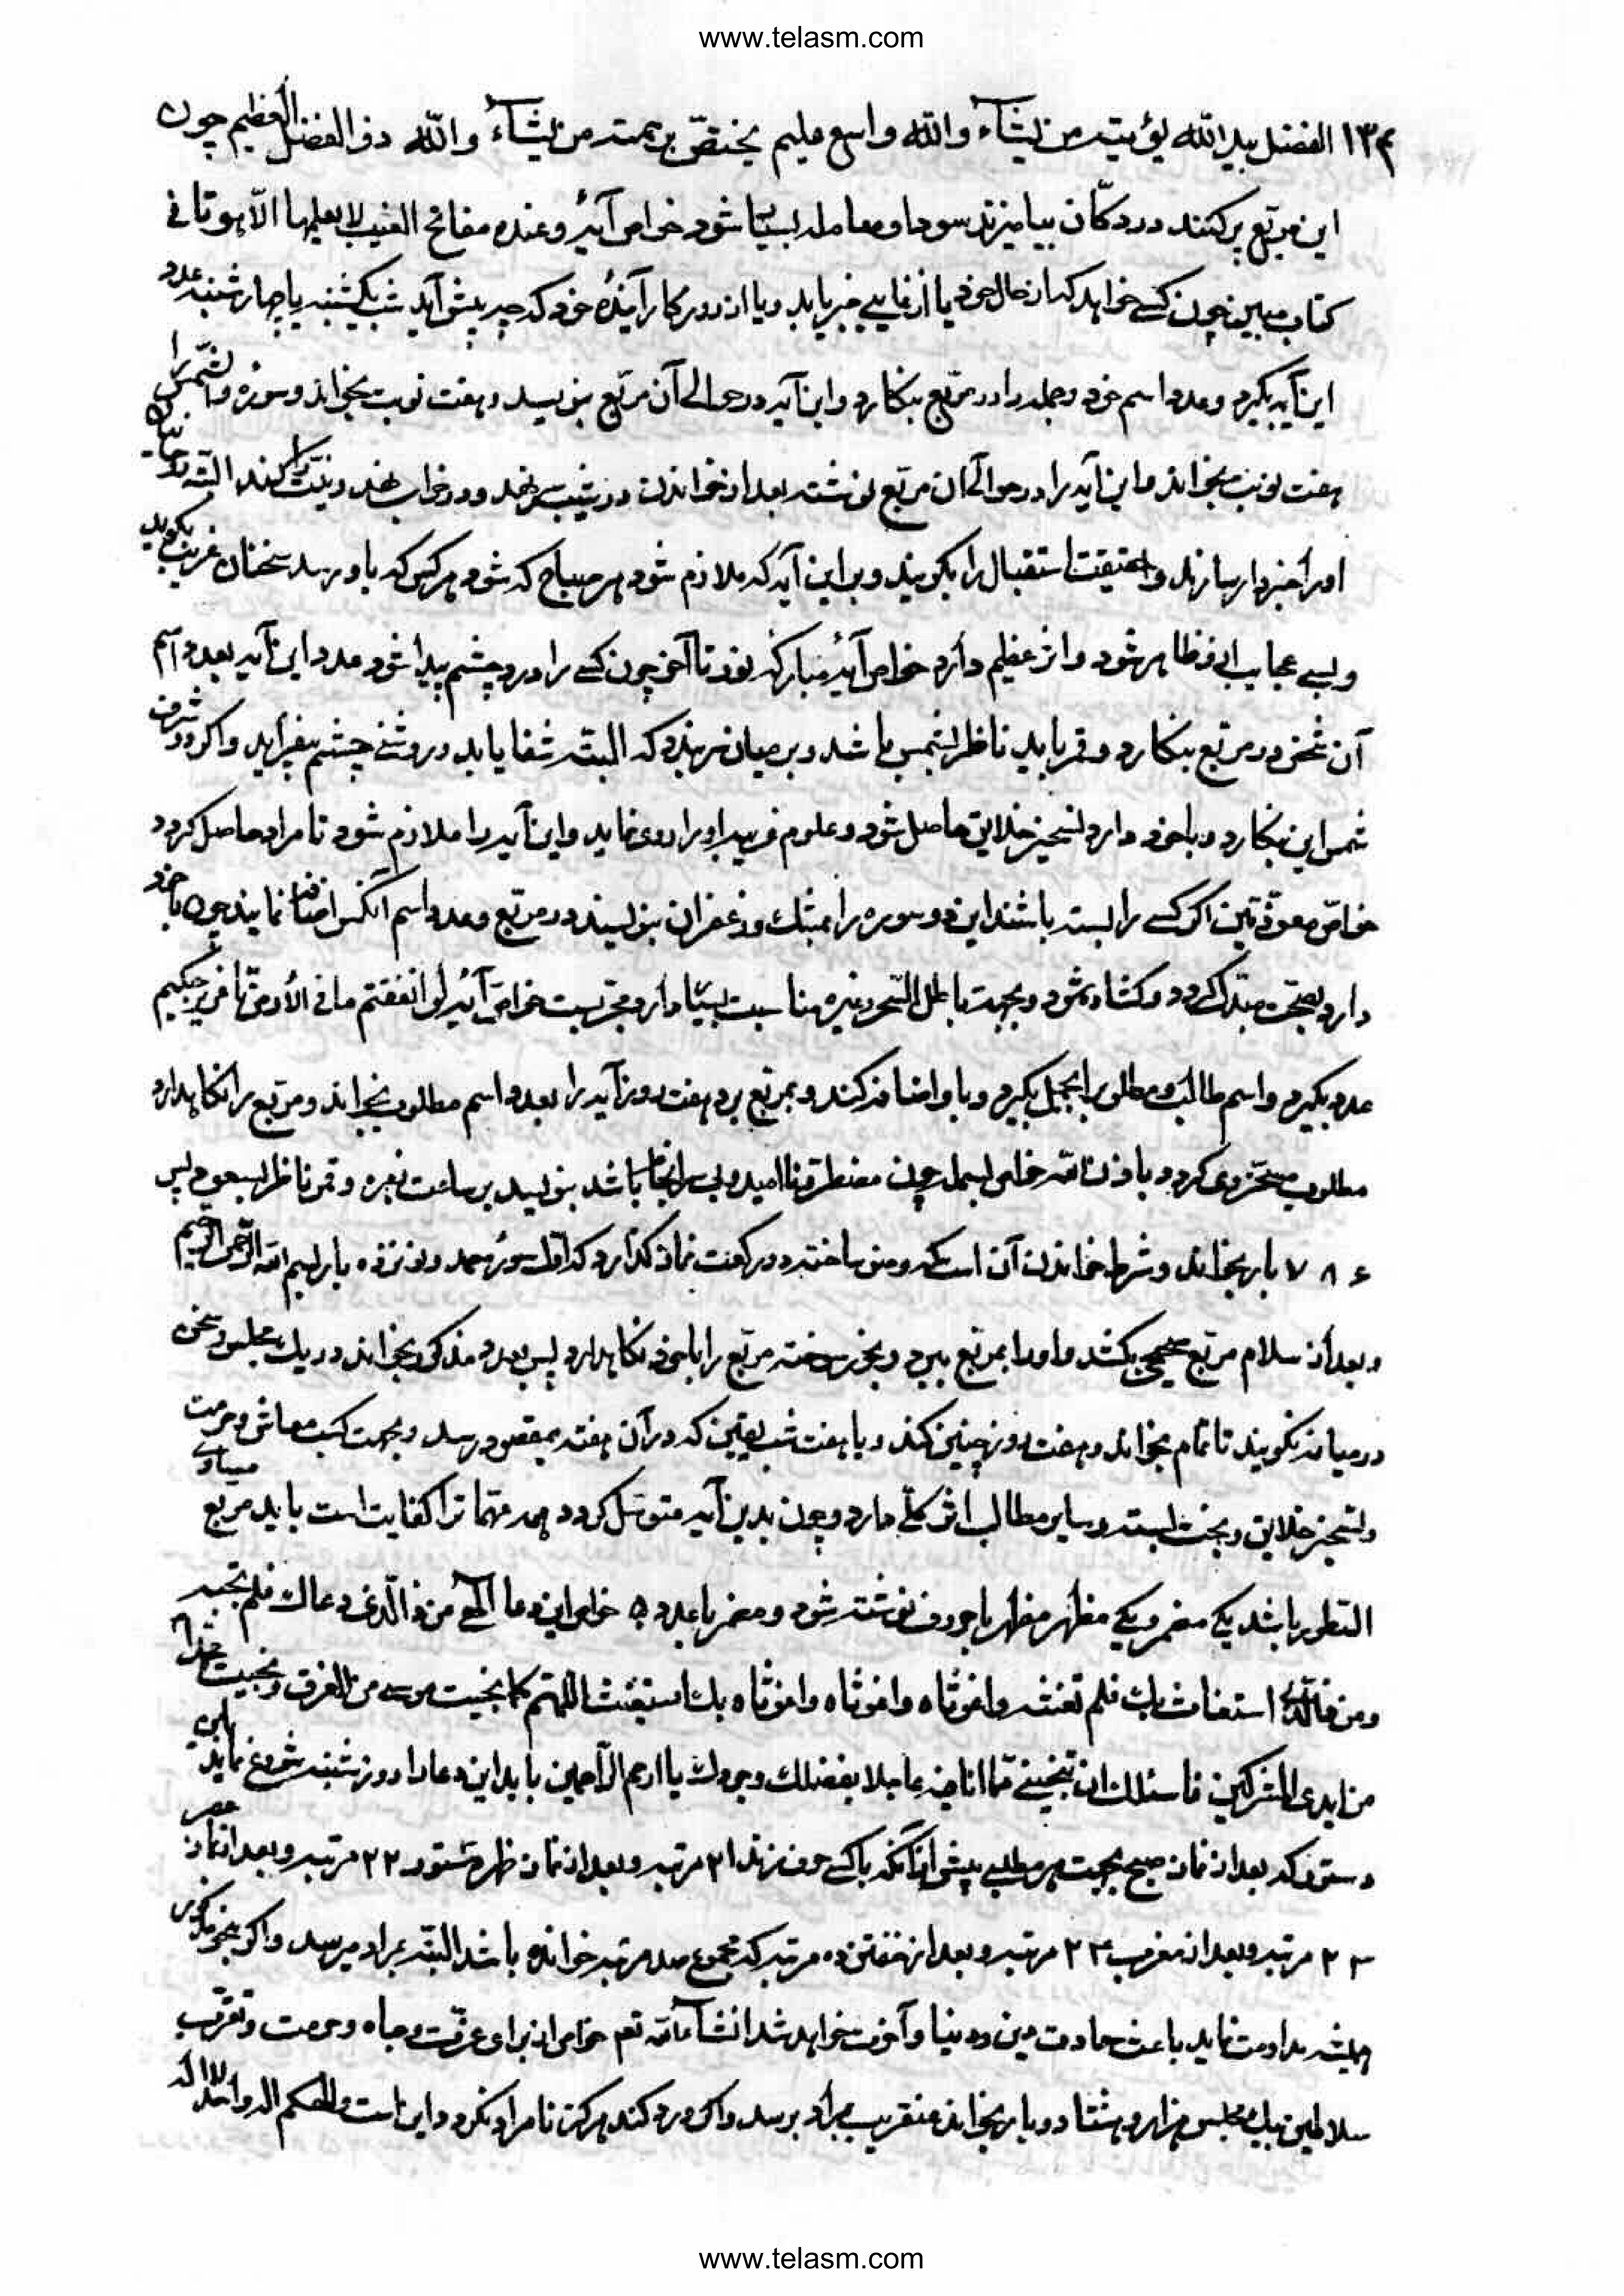 www.telasm.com
۱۳۴ الفضل بید الله یؤتیه من یشآء والله واسع علیم یختصّ برحمته من یشآء والله ذو الفضل العظیم چون
این مربّع پر کنند در دکّان بیامیزند سودا و معامله بسیار شود خواص آیهٔ وعنده مفاتح الغیب لا یعلمها الّا هو تا فی
کتاب مبین چون کسے خواهد که از حال خود یا از غایبے خبر یابد و یا از کار آیندهٔ خود که چه پیش آید شب یکشنبه یا چهارشنبه عدد
این آیه بگیرد و عدد اسم خود و جمله را در مربّع بنکارد و این آیه در حوالے آن مربّع بنویسد و هفت نوبت بخواند و سوره والشّمس را
هفت نوبت بخواند و این آیه را در حوالے آن مربّع نوشته بعد از خواندن در زیر سر نهد و در خواب نهد و نیّت کند البتّه
او را خبردار سازند و حقیقت استقبال را بکویند و بر این آیه که ملازم شود هر صباح که شود هر کس که باو رسد سخنان غریب بکوید
و بسے عجایب از او ظاهر شود و اثر عظیم دارد خواص آیهٔ مبارکه نور تا آخر چون کسے را درد چشم پیدا شود عدد این آیه بعدد اسم
آن شخص در مربّع بنکارد و قمر باید ناظر بشمس باشد و بر میان بندد که البتّه شفا یابد و روشنے چشم بیفزاید و اکر در شرف
شمس این بنکارد و با خود دارد تسخیر خلایق حاصل شود و علوم غریبه او را روی نماید و این آیه را ملازم شود تا مراد حاصل کردد
خواصّ معوّذتین اکر کسے را بسته باشند این دو سوره را بمشک و زعفران بنویسند در مربّع و عدد اسم آنکس اضافه نمایند چون با خود
دارد بصحّت مبدّل کردد و کشاده شود و بجهت باطل السّحر و غیره مناسبت بسیار دارد و مجرّبست خواصّ آیهٔ لو انفقت ما فی الأرض تا عزیز حکیم
عدد بکیرد و اسم طالب و مطلوب را بجمل بکیرد و باو اضافه کند و بمربّع برد هفت روز آیه را بعدد اسم مطلوب بخواند و مربّع را نکاهدارد
مطلوب مسخّر وی کردد باذن الله خواص بسمله چون مضطر و ناامید و بی سرانجام باشد بنویسد در ساعت زهره و قمر ناظر بسعود پس
۷۸۶ بار بخواند و شرط خواندن آن است که وضو ساخته دو رکعت نماز کذارد که اوّل سورهٔ حمد و نوزده بار بسم الله الرّحمن الرّحیم
و بعد از سلام مربّع صحیحی بکشد و او را بمربّع ببرد و بخور سوخته مربّع را با خود نکاهدارد پس بعدد مذکور بخواند در یک مجلس و سخن
در میانه نکوید تا تمام بخواند و هفت روز چنین کند و یا هفت شب یقین که در آن هفته بمقصود رسد و بجهت کسب معاش و حرمت
و تسخیر خلایق و بخت بسته و سایر مطالب اثر کلّے دارد و چون بدین آیه متوسّل کردد همه مهمّات را کفایت است باید مربّع مساوے
السّطور باشد یکے مضمر و یکے مظهر مظهر با حروف نوشته شود و مضمر با عدد خواص این دعا الهی من ذا الّذی دعاک فلم تجبه
و من ذا الّذی استغاث بک فلم تغثه واغوثاه واغوثاه واغوثاه بک استغیث اللّهمّ کما نجّیت موسے من الغرق و نجّیت محمّداً
من ایدی المشرکین فاسئلک ان تنجّینے ممّا انا فیه عاجلا بفضلک وجودک یا ارحم الرّاحمین باید این دعا را روز شنبه شروع نماید باین
دستور که بعد از نماز صبح بجهت هر مطلبے پیش از آنکه با کسے حرف زند ۲۱ مرتبه و بعد از نماز ظهر ۲۲ مرتبه و بعد از نماز عصر
۲۳ مرتبه و بعد از مغرب ۲۴ مرتبه و بعد از خفتن ده مرتبه که مجموع صد مرتبه خوانده باشد البتّه بمراد میرسد و اکر بنحو مذکور
همیشه مداومت نماید باعث سعادت دین و دنیا و آخرت خواهد شد انشآء الله تعم خواص از برای عزّت و جاه و حرمت و تقرّب
سلاطین بیک مجلس هزار و هشتاد و بار بخواند عنقریب بمراد برسد و اکر ورد کند هرکز نامراد نکردد و این است والهکم اله واحد لا اله
www.telasm.com